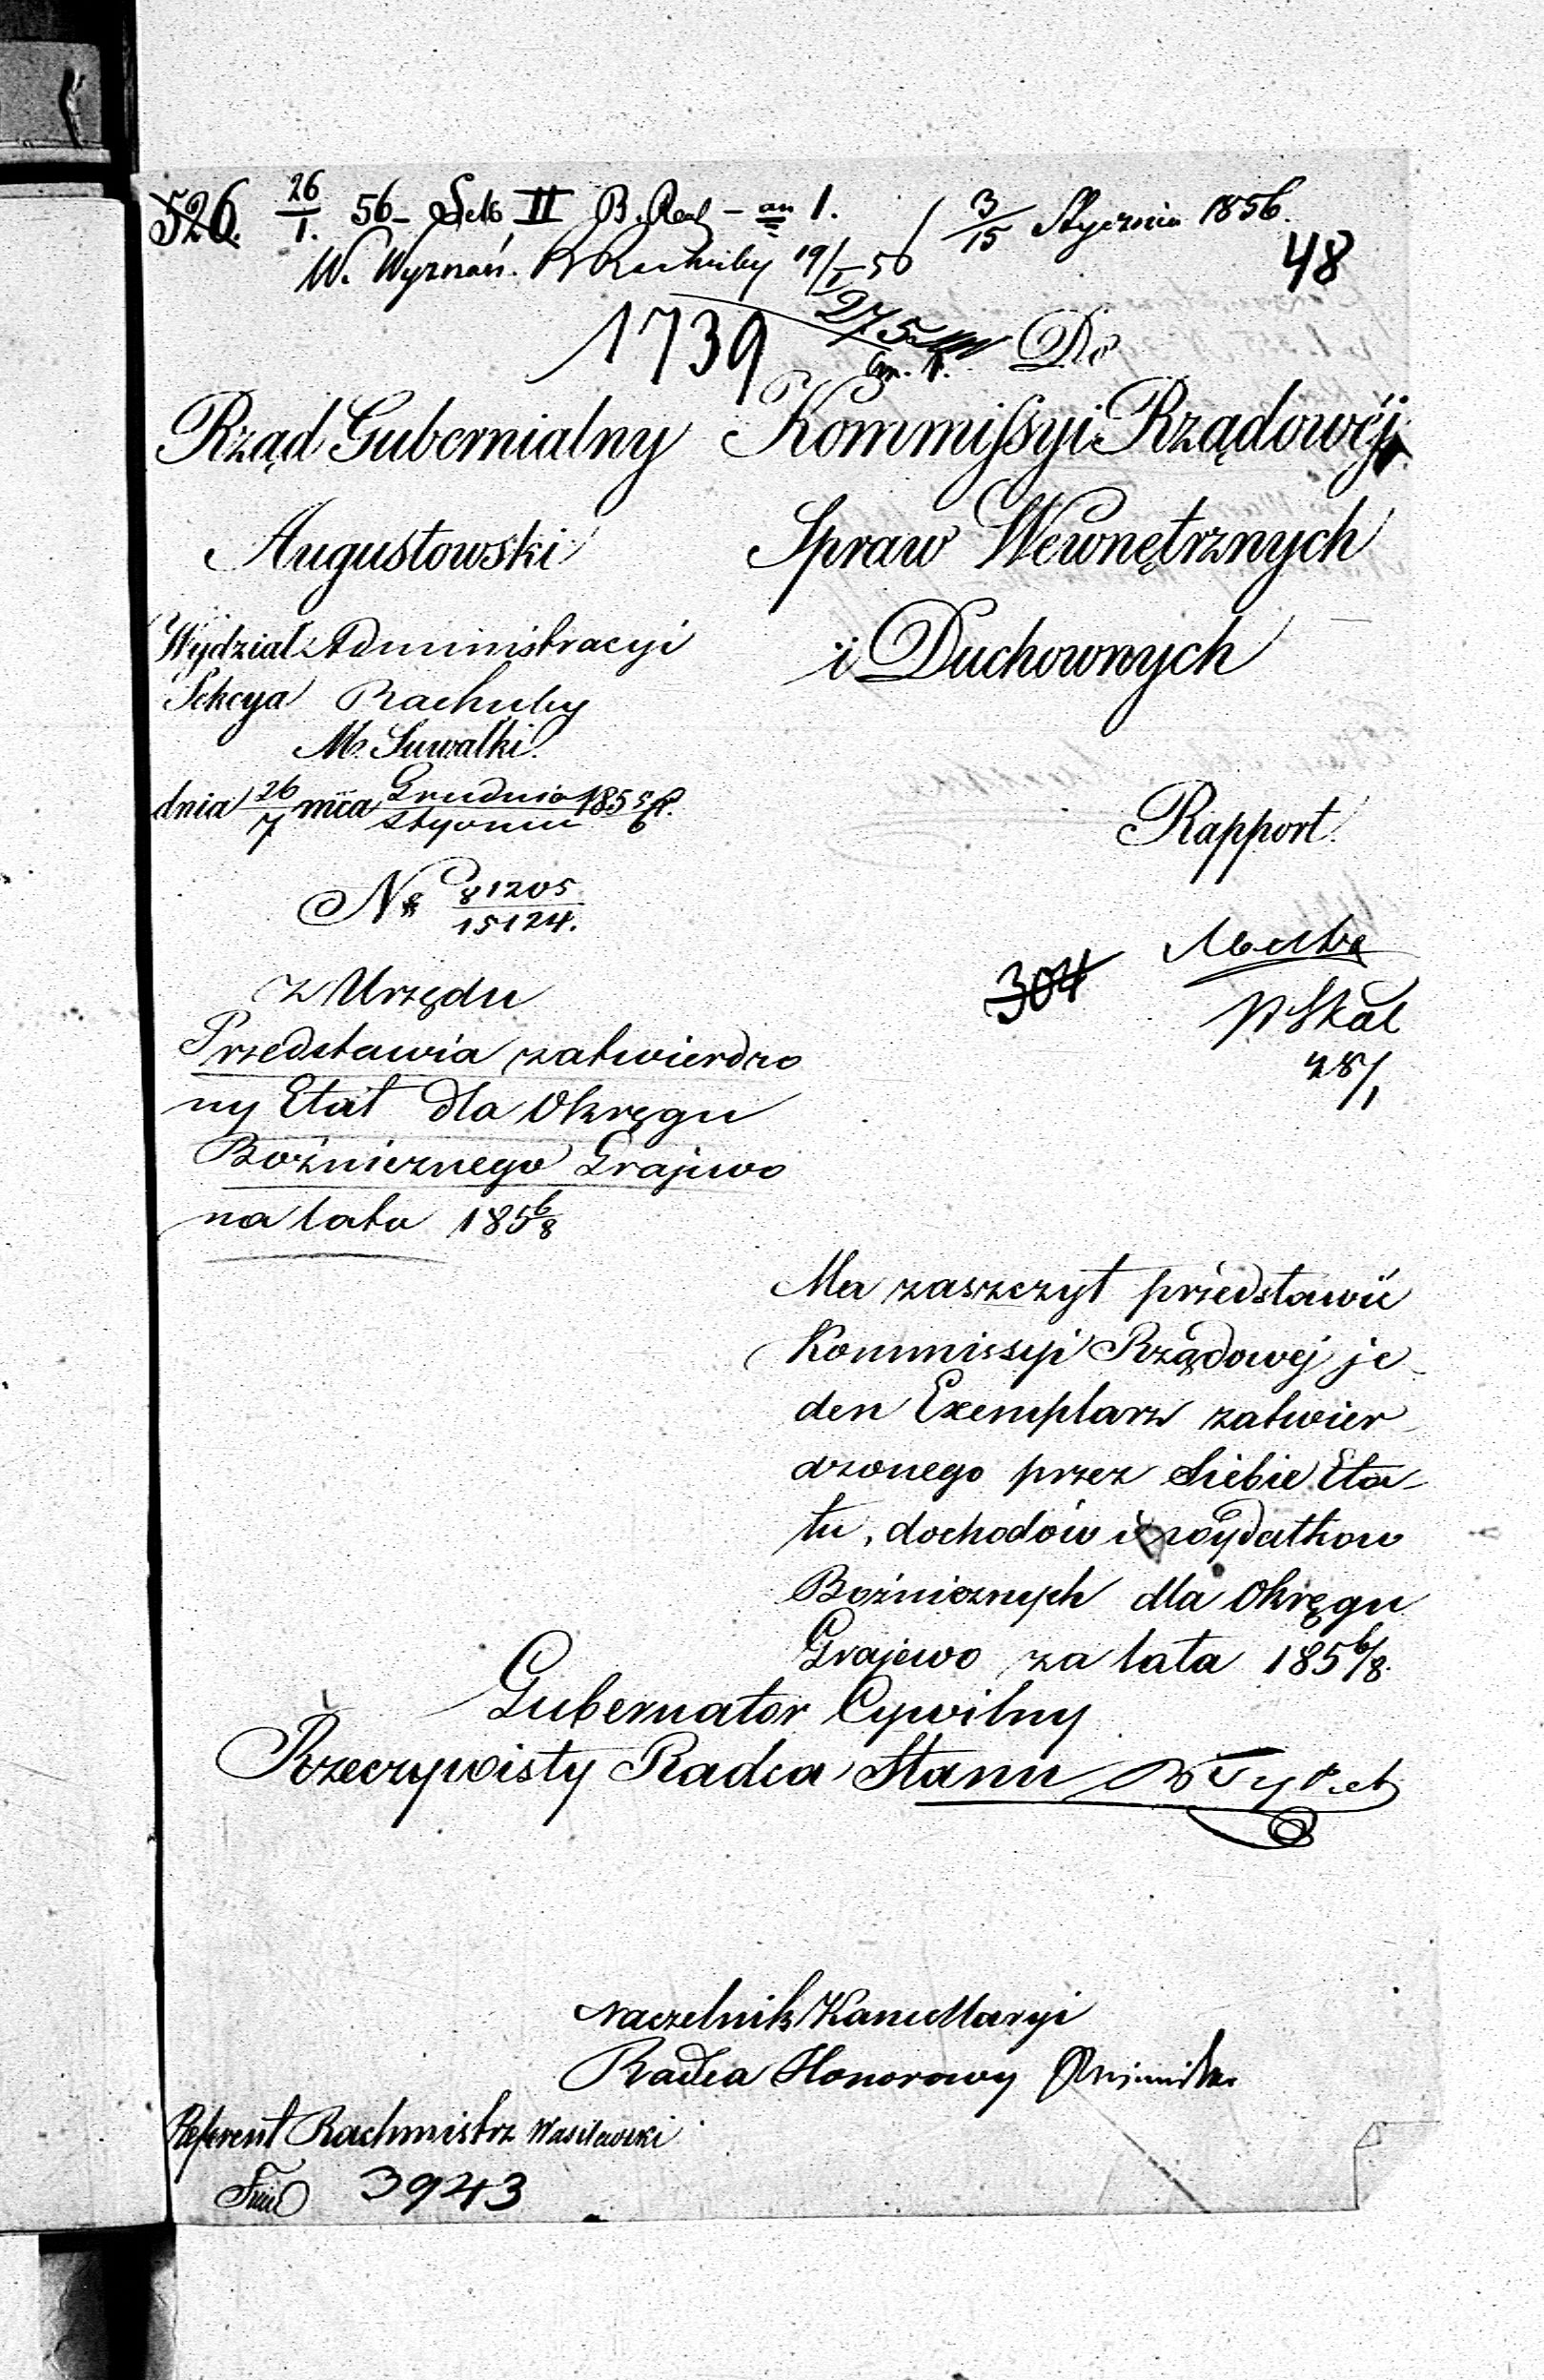 526. 26/I. 56 – Sek II B. Rach – an 1.
3/15 Stycznia 1856.
W. Wyznań. B Rachuby 19/I – 56
48
1739
275
Do
Rząd Gubernialny
Augustowski
Kommissyi Rządowéj
Spraw Wewnętrznych
i Duchownych
Wydział Administracyi
Sekcya Rachuby
M. Suwałki.
dnia 26/7 mca Grudnia/Stycznia 1855/6 r.
№ 81205/15124.
Rapport.
304
28/1
z Urzędu
Przedstawia zatwierdzo
ny Etat dla Okręgu
Bożnicznego Grajewo
na lata 1856/8
Ma zaszczyt przedstawić
Kommissyi Rządowej je
den Exemplarz zatwier
dzonego przez siebie Eta-
tu, dochodów i wydatkow
Bożnicznych dla Okręgu
Grajewo za lata 1856/8.
Gubernator Cywilny
Rzeczywisty Radca Stanu
Naczelnik Kancellaryi
Radca Honorowy
Referent Rachmistrz Wasilewski
3943